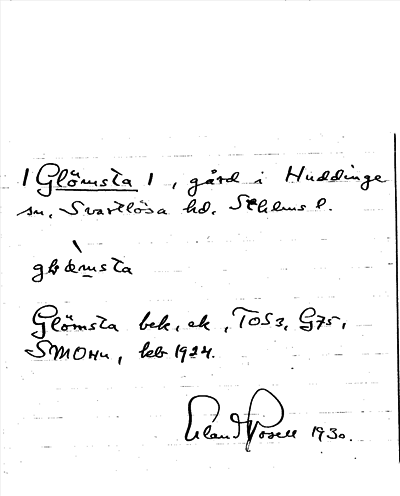 / Glömsta / , gård i Huddinge
sn, Svartlösa hd, Sthlms l.
glömsta
Glömsta bek, ek, TOS3, G75,
SMOHu, kb 1924.
Erland Rosell 1930.